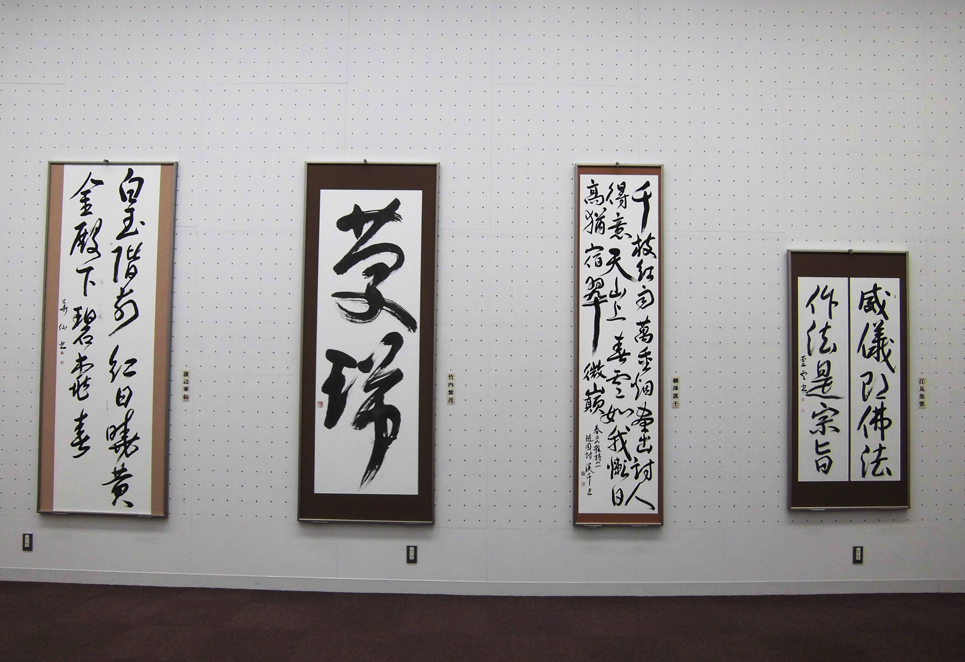 白玉階前紅日曉黄
金殿下碧桃春
華仙書
渡辺華仙
瑞
千枝紅雨萬重烟畫出詩人
得意天山上春雲如我懶日
高猶宿翠微巓
威儀即佛法
作法是宗旨